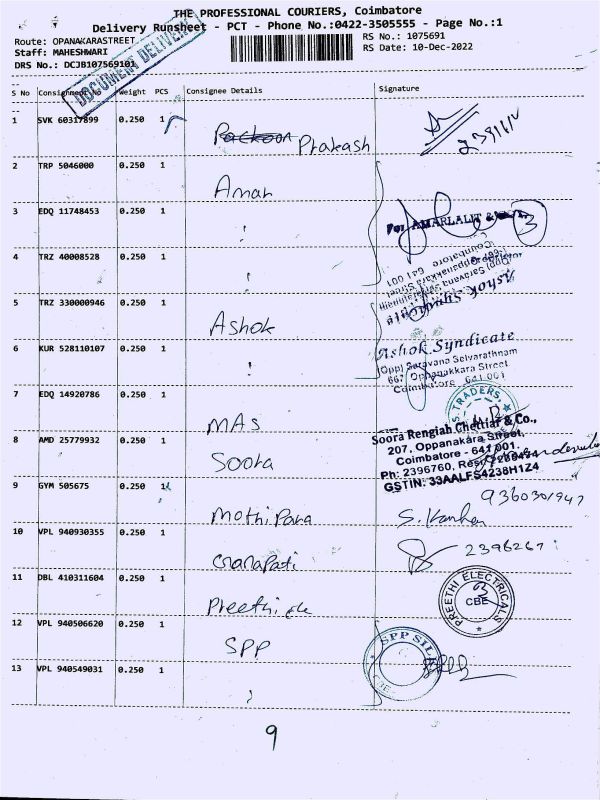 THE PROFESSIONAL COURIERS, Coimbatore
Delivery Runsheet - PCT - Phone No.:0422-3505555 - Page No.:1
Route: OPANAKARASTREET
Staff: MAHESHWARI
DRS No.: DCJB107569101
RS No.: 1075691
RS Date: 10-Dec-2022
DOCUMENT DELIVERY
S No Consignment No Weight PCS Consignee Details Signature
1 SVK 60317899 0.250 1 Prakash
2 TRP 5046000 0.250 1 Aman
3 EDQ 11748453 0.250 1 "
For AMARLALIT &
3
4 TRZ 40008528 0.250 1 "
5 TRZ 330000946 0.250 1 Ashok
Ashok Syndicate
(Opp) Saravana Selvarathnam
667, Oppanakkara Street
Coimbatore 641 001
6 KUR 528110107 0.250 1 "
Ashok Syndicate
(Opp) Saravana Selvarathnam
667, Oppanakkara Street
Coimbatore - 641 001
7 EDQ 14920786 0.250 1 MAS
S. TRADERS
8 AMD 25779932 0.250 1 Soora
Soora Rengiah Chettiar & Co.,
207, Oppanakara Street,
Coimbatore - 641 001.
Ph: 2396760, Resi:
GSTIN: 33AALFS4238H1Z4
9 GYM 505675 0.250 1 Mothi Rana S. Kanhan
9360301947
10 VPL 940930355 0.250 1 Ganapati
2398267
11 DBL 410311604 0.250 1 Preethi ele
PREETHI ELECTRICALS
CBE
12 VPL 940506620 0.250 1 SPP
SPP SILK
CBE
13 VPL 940549031 0.250 1 "
9